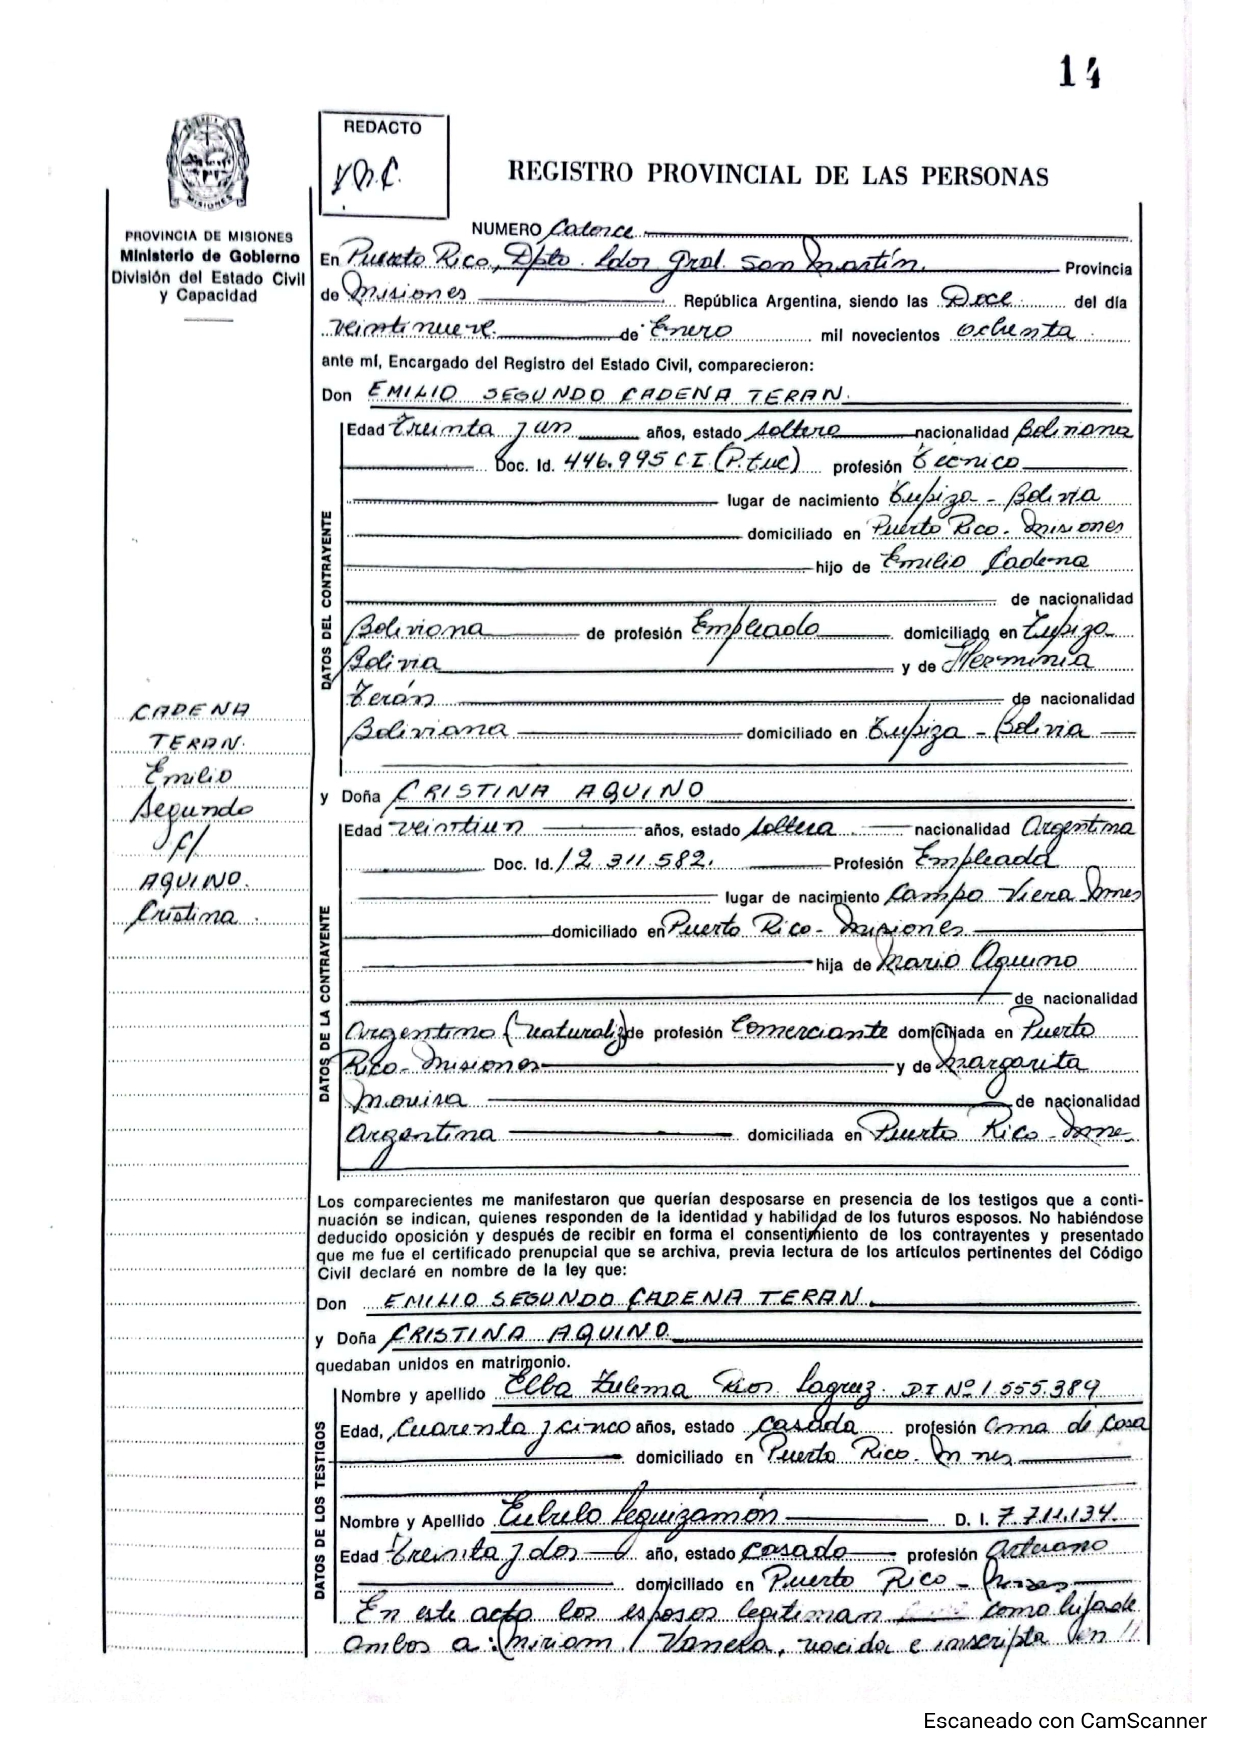 14
REDACTO
REGISTRO PROVINCIAL DE LAS PERSONAS
MISIONES
PROVINCIA DE MISIONES
Ministerio de Gobierno
División del Estado Civil
y Capacidad
NUMERO Catorce
En Puerto Rico, Dpto. Ldor Gral. San Martín. Provincia
de Misiones República Argentina, siendo las Doce del día
veintinueve de Enero mil novecientos ochenta
ante mí, Encargado del Registro del Estado Civil, comparecieron:
Don EMILIO SEGUNDO CADENA TERAN.
DATOS DEL CONTRAYENTE
Edad Treinta y un años, estado soltero nacionalidad Boliviana
Doc. Id. 446.995 C I (P. tuc) profesión Técnico
lugar de nacimiento Tupiza - Bolivia
domiciliado en Puerto Rico - Misiones
hijo de Emilio Cadena
de nacionalidad
Boliviana de profesión Empleado domiciliado en Tupiza
Bolivia y de Herminia
Terán de nacionalidad
Boliviana domiciliado en Tupiza - Bolivia
CADENA
TERAN.
Emilio
Segundo
c/
AQUINO.
Cristina.
y Doña CRISTINA AQUINO
DATOS DE LA CONTRAYENTE
Edad veintiun años, estado soltera nacionalidad Argentina
Doc. Id. 12.311.582. Profesión Empleada
lugar de nacimiento Campo Viera Mnes
domiciliado en Puerto Rico - Misiones
hija de Mario Aquino
de nacionalidad
Argentino (naturaliz) de profesión Comerciante domiciliada en Puerto
Rico - Misiones y de Margarita
de nacionalidad
Argentina domiciliada en Puerto Rico - Mnes.
Los comparecientes me manifestaron que querían desposarse en presencia de los testigos que a conti-
nuación se indican, quienes responden de la identidad y habilidad de los futuros esposos. No habiéndose
deducido oposición y después de recibir en forma el consentimiento de los contrayentes y presentado
que me fue el certificado prenupcial que se archiva, previa lectura de los artículos pertinentes del Código
Civil declaré en nombre de la ley que:
Don EMILIO SEGUNDO CADENA TERAN.
y Doña CRISTINA AQUINO
quedaban unidos en matrimonio.
DATOS DE LOS TESTIGOS
Nombre y apellido Elba Zulema Rios DI Nº 1.555.389
Edad, Cuarenta y cinco años, estado casada profesión Ama de Casa
domiciliado en Puerto Rico - Mnes
Nombre y Apellido Eubulo Leguizamón D. I. 7.711.134.
Edad treinta y dos año, estado casado profesión Artesano
domiciliado en Puerto Rico -
En este acto los esposos legitiman como hija de
ambos a: Miriam Vanesa, nacida e inscripta en
Escaneado con CamScanner